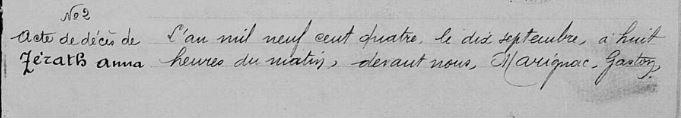 No 2
Acte de décès de
Zérath anna
L'an mil neuf cent quatre, le dix septembre, à huit
heures du matin, devant nous, Marignac, Gaston,